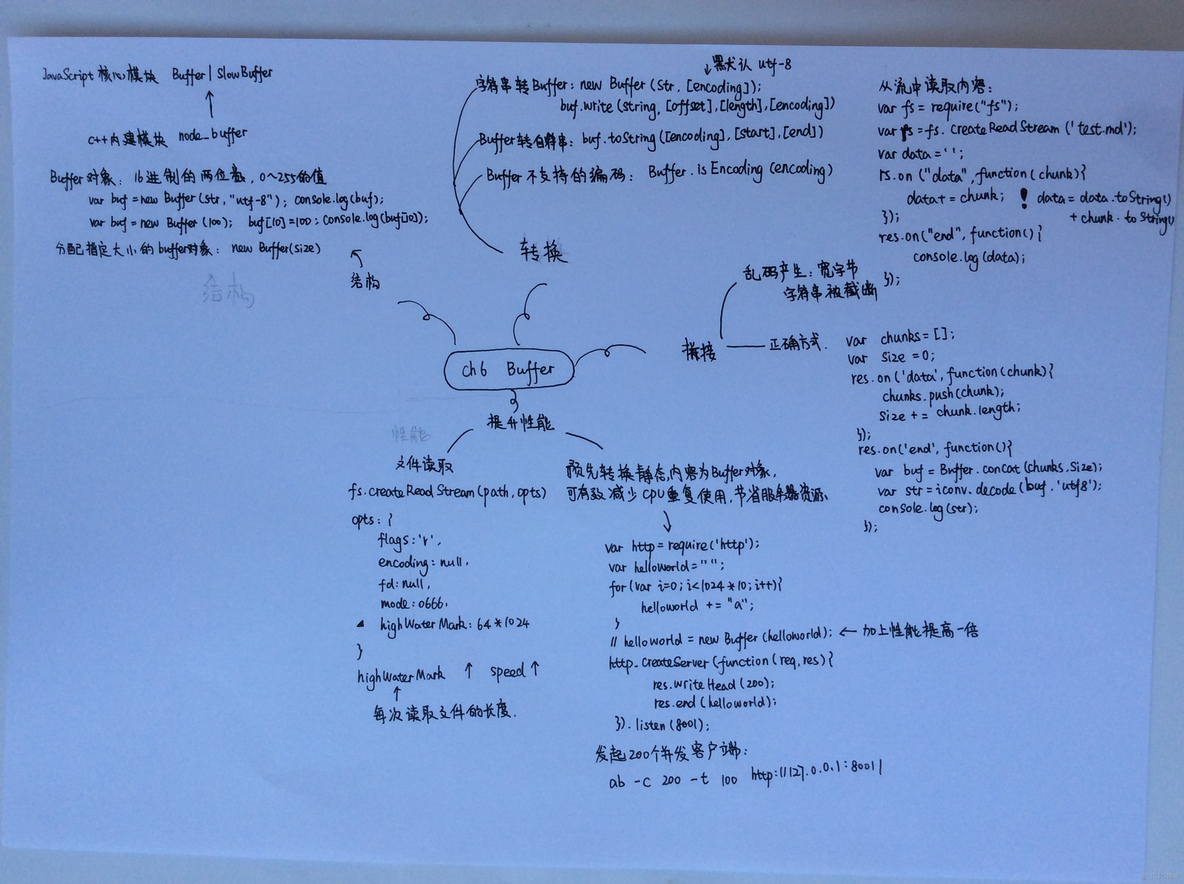 JavaScript 核心模块 Buffer | SlowBuffer
C++内建模块 node_buffer
Buffer对象：16进制的两位数，0~255的值
var buf = new Buffer(str, "utf-8"); console.log(buf);
var buf = new Buffer(100); buf[10]=100; console.log(buf[10]);
分配指定大小的buffer对象：new Buffer(size)
结构
结构
默认 utf-8
字符串转Buffer：new Buffer(str, [encoding]);
buf.write(string, [offset], [length], [encoding])
Buffer转字符串：buf.toString([encoding], [start], [end])
Buffer不支持的编码：Buffer.isEncoding(encoding)
转换
从流中读取内容：
var fs = require("fs");
var rs = fs.createReadStream('test.md');
var data = '';
rs.on("data", function(chunk){
data += chunk; ! data = data.toString()
+ chunk.toString()
});
res.on("end", function(){
console.log(data);
});
乱码产生：宽字节
字符串被截断
拼接
正确方式.
var chunks = [];
var size = 0;
res.on('data', function(chunk){
chunks.push(chunk);
size += chunk.length;
});
res.on('end', function(){
var buf = Buffer.concat(chunks, size);
var str = iconv.decode(buf, 'utf8');
console.log(str);
});
ch6 Buffer
提升性能
性能
文件读取
fs.createReadStream(path, opts)
opts: {
flags: 'r',
encoding: null,
fd: null,
mode: 0666,
highWaterMark: 64*1024
}
highWaterMark ↑ speed ↑
每次读取文件的长度.
预先转换静态内容为Buffer对象，
可有效减少CPU重复使用，节省服务器资源、
var http = require('http');
var helloworld = "";
for(var i=0; i<1024*10; i++){
helloworld += "a";
}
// helloworld = new Buffer(helloworld); ← 加上性能提高一倍
http.createServer(function(req, res){
res.writeHead(200);
res.end(helloworld);
}).listen(8001);
发起200个并发客户端：
ab -c 200 -t 100 http://127.0.0.1:8001/